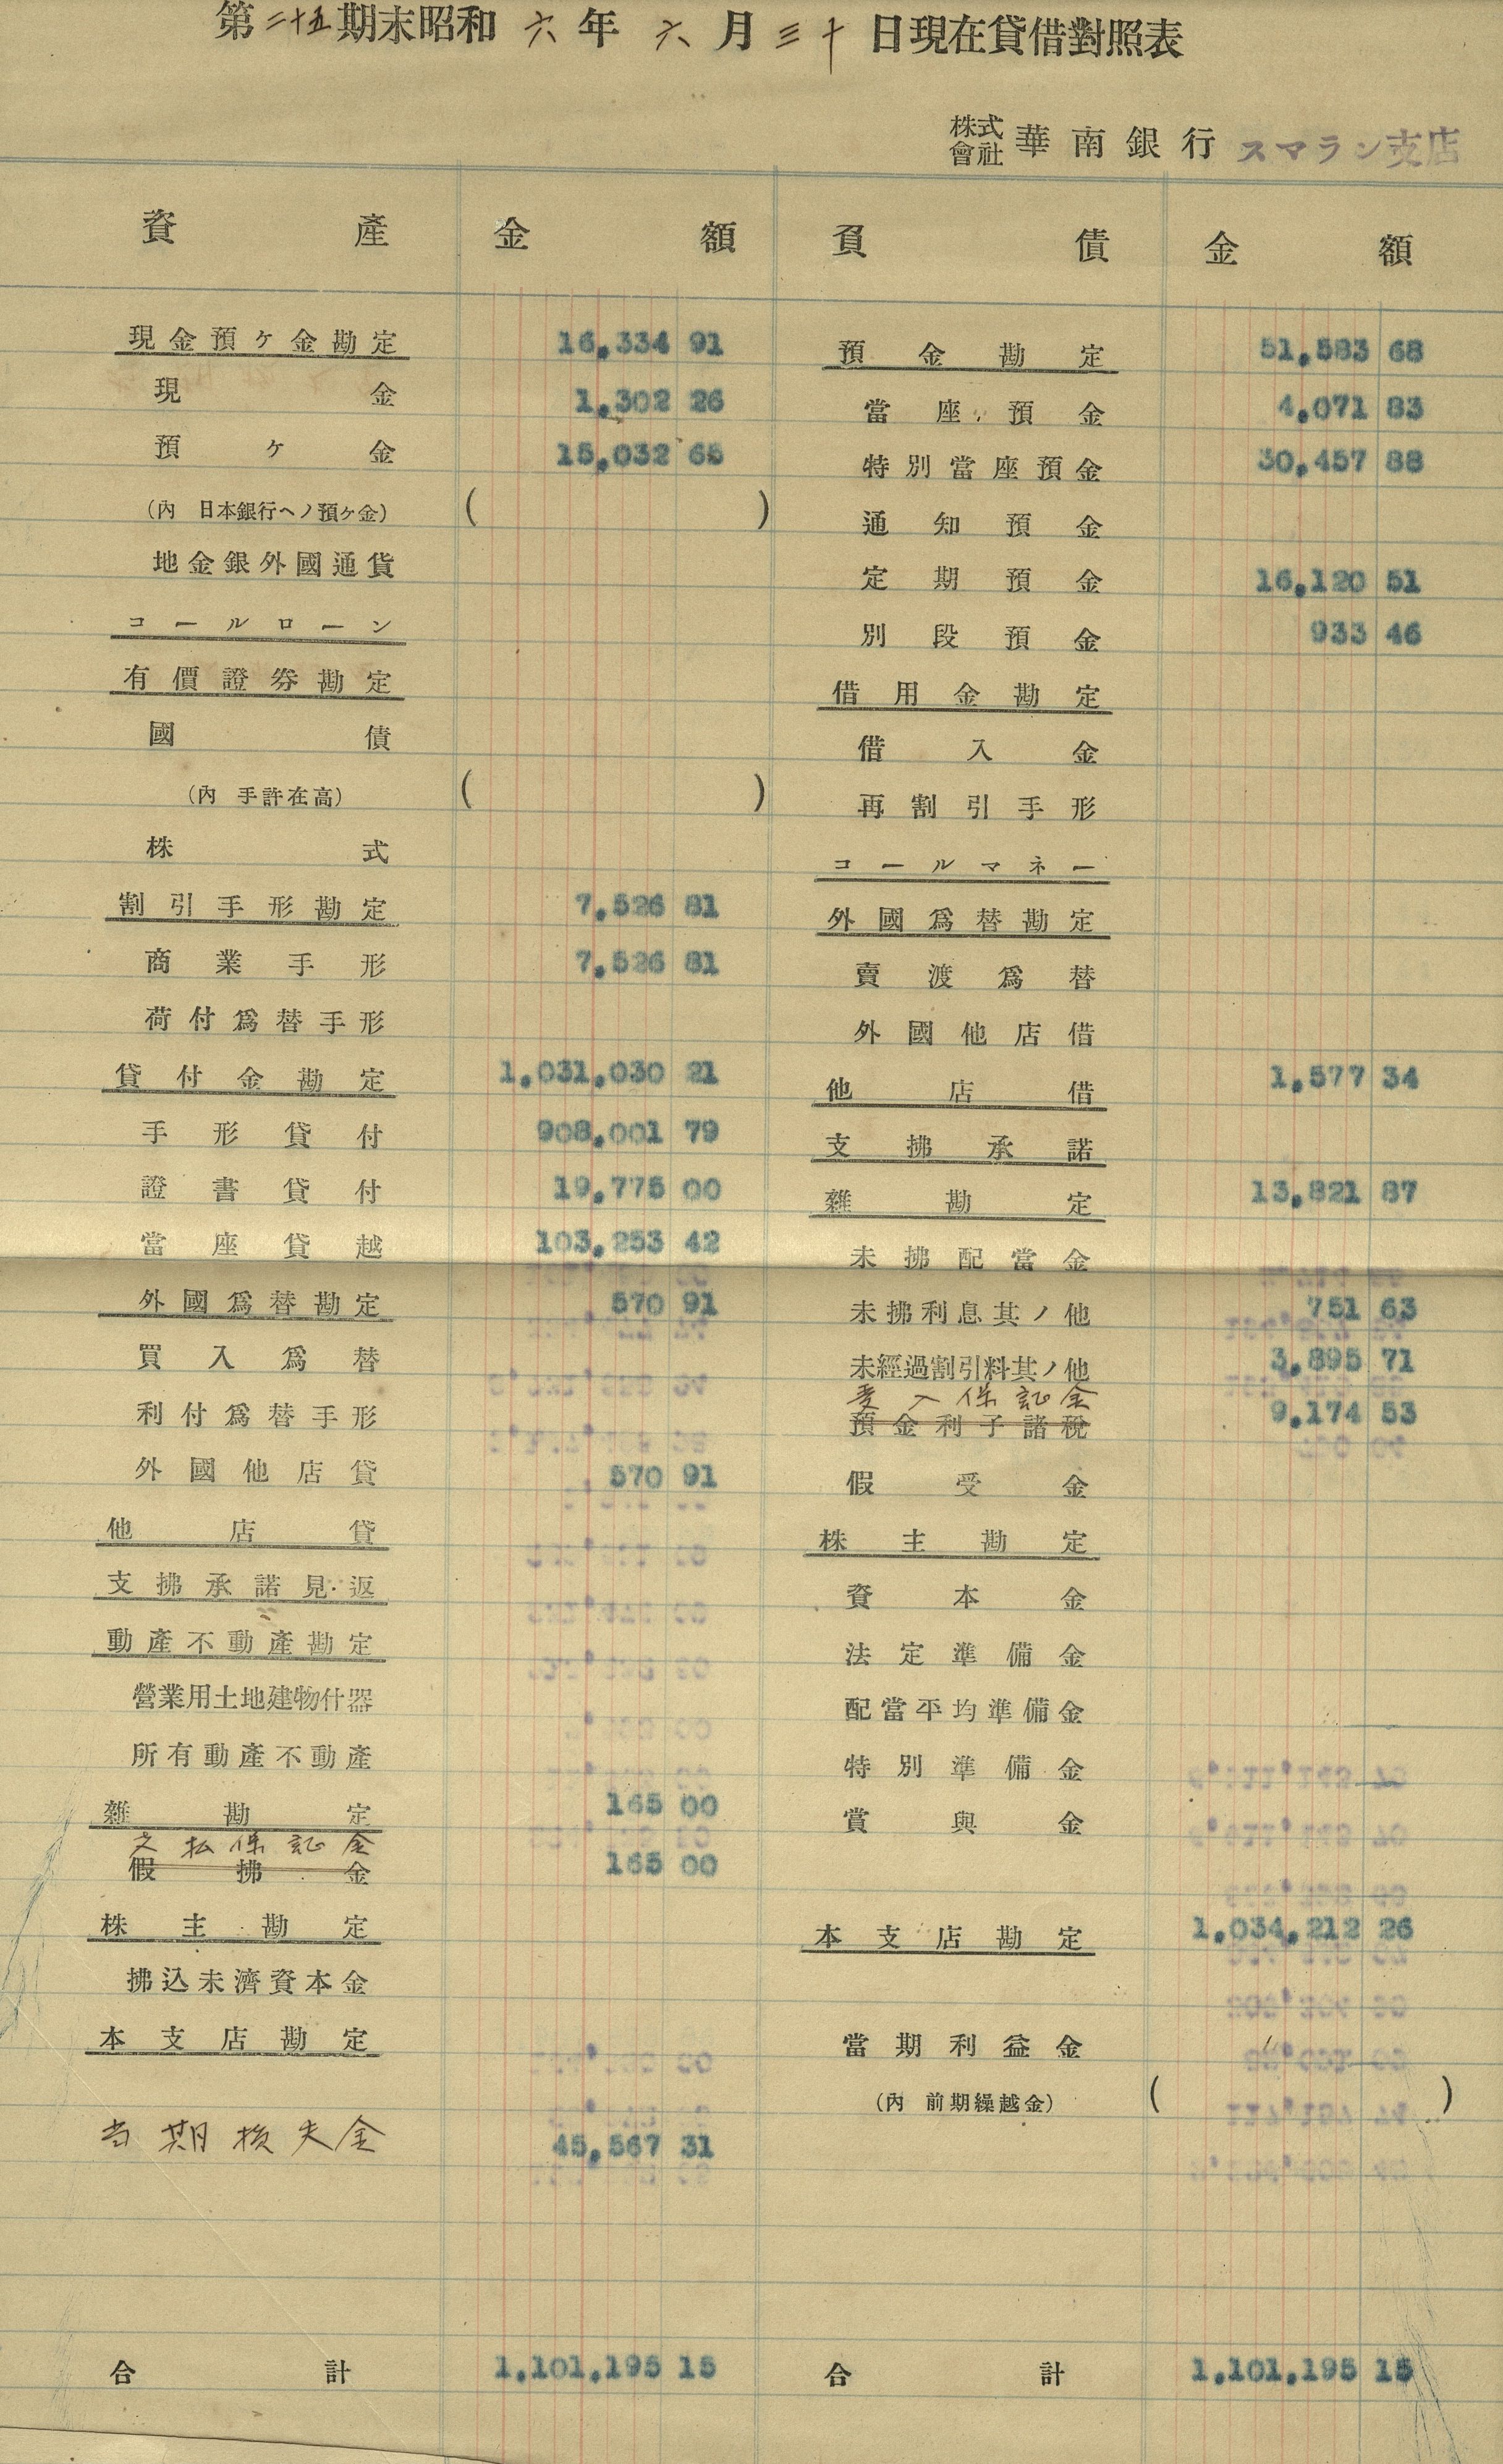 第二十五期末昭和六年六月三十日現在貸借對照表
株式會社華南銀行スマラン支店
資産 金額 負債 金額
現金預ヶ金勘定 16,334 91
現金 1,302 26
預ヶ金 15,032 65
(內 日本銀行ヘノ預ヶ金) ( )
地金銀外國通貨
コールローン
有價證券勘定
國債
(內 手許在高) ( )
株式
割引手形勘定 7,526 81
商業手形 7,526 81
荷付爲替手形
貸付金勘定 1,031,030 21
手形貸付 908,001 79
證書貸付 19,775 00
當座貸越 103,253 42
外國爲替勘定 570 91
買入爲替
利付爲替手形
外國他店貸 570 91
他店貸
支拂承諾見返
動產不動產勘定
營業用土地建物什器
所有動產不動產
雜勘定 165 00
支払保証金
假拂金 165 00
株主勘定
拂込未濟資本金
本支店勘定
当期損失金 45,567 31
合計 1,101,195 15
預金勘定 51,583 68
當座預金 4,071 83
特別當座預金 30,457 88
通知預金
定期預金 16,120 51
別段預金 933 46
借用金勘定
借入金
再割引手形
コールマネー
外國爲替勘定
賣渡爲替
外國他店借
他店借 1,577 34
支拂承諾
雜勘定 13,821 87
未拂配當金
未拂利息其ノ他 751 63
未經過割引料其ノ他 3,895 71
受入保証金
預金利子諸稅 9,174 53
假受金
株主勘定
資本金
法定準備金
配當平均準備金
特別準備金
賞與金
本支店勘定 1,034,212 26
當期利益金
(內 前期繰越金) ( )
合計 1,101,195 15